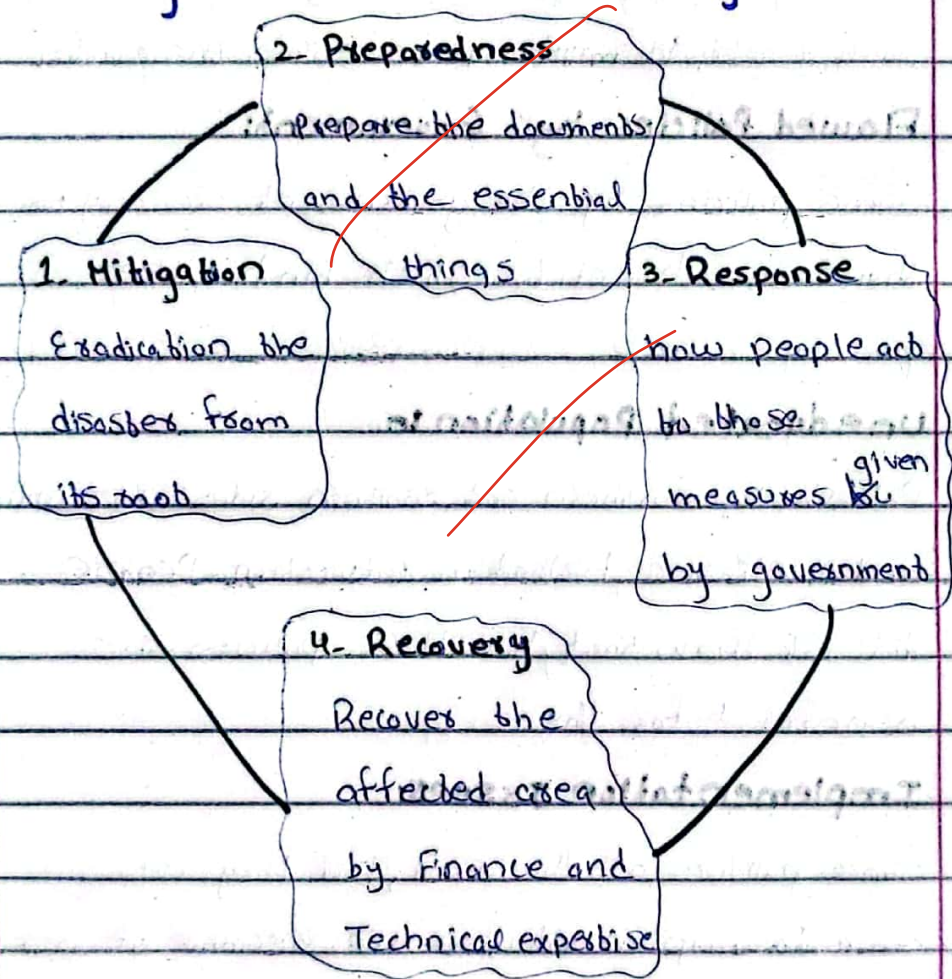 2- Preparedness
Prepare the documents
and the essential
things
1. Mitigation
Eradication the
disaster from
its root
3- Response
how people act
to those
given
measures
by government
4- Recovery
Recover the
affected area
by Finance and
Technical expertise